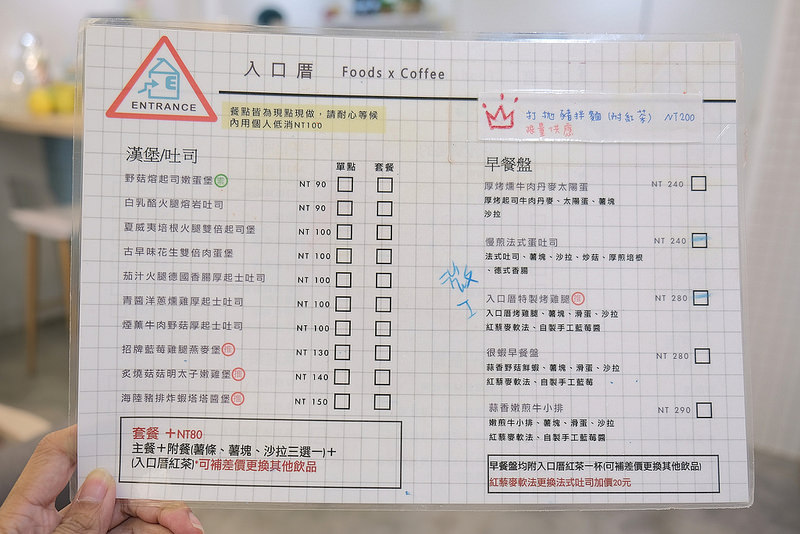 ENTRANCE
入口厝 Foods x Coffee
餐點皆為現點現做，請耐心等候
內用個人低消NT100
打拋豬拌麵(附紅茶) NT200
限量供應
漢堡/吐司
單點 套餐
野菇熔起司嫩蛋堡 NT 90
白乳酪火腿熔岩吐司 NT 90
夏威夷培根火腿雙倍起司堡 NT 100
古早味花生雙倍肉蛋堡 NT 100
茄汁火腿德國香腸厚起士吐司 NT 100
青醬洋蔥燻雞厚起士吐司 NT 100
煙薰牛肉野菇厚起士吐司 NT 100
招牌藍莓雞腿燕麥堡 推 NT 130
炙燒菇菇明太子嫩雞堡 推 NT 140
海陸豬排炸蝦塔塔醬堡 推 NT 150
套餐 ＋NT80
主餐＋附餐(薯條、薯塊、沙拉三選一)＋
(入口厝紅茶)*可補差價更換其他飲品
早餐盤
厚烤燻牛肉丹麥太陽蛋 NT 240
厚烤起司牛肉丹麥、太陽蛋、薯塊
沙拉
慢煎法式蛋吐司 NT 240
法式吐司、薯塊、沙拉、炒菇、厚煎培根
、德式香腸
入口厝特製烤雞腿 推 NT 280
入口厝烤雞腿、薯塊、滑蛋、沙拉
紅藜麥軟法、自製手工藍莓醬
很蝦早餐盤 NT 280
蒜香野菇鮮蝦、薯塊、滑蛋、沙拉
紅藜麥軟法、自製手工藍莓
蒜香嫩煎牛小排 NT 290
嫩煎牛小排、薯塊、滑蛋、沙拉
紅藜麥軟法、自製手工藍莓醬
早餐盤均附入口厝紅茶一杯(可補差價更換其他飲品)
紅藜麥軟法更換法式吐司加價20元